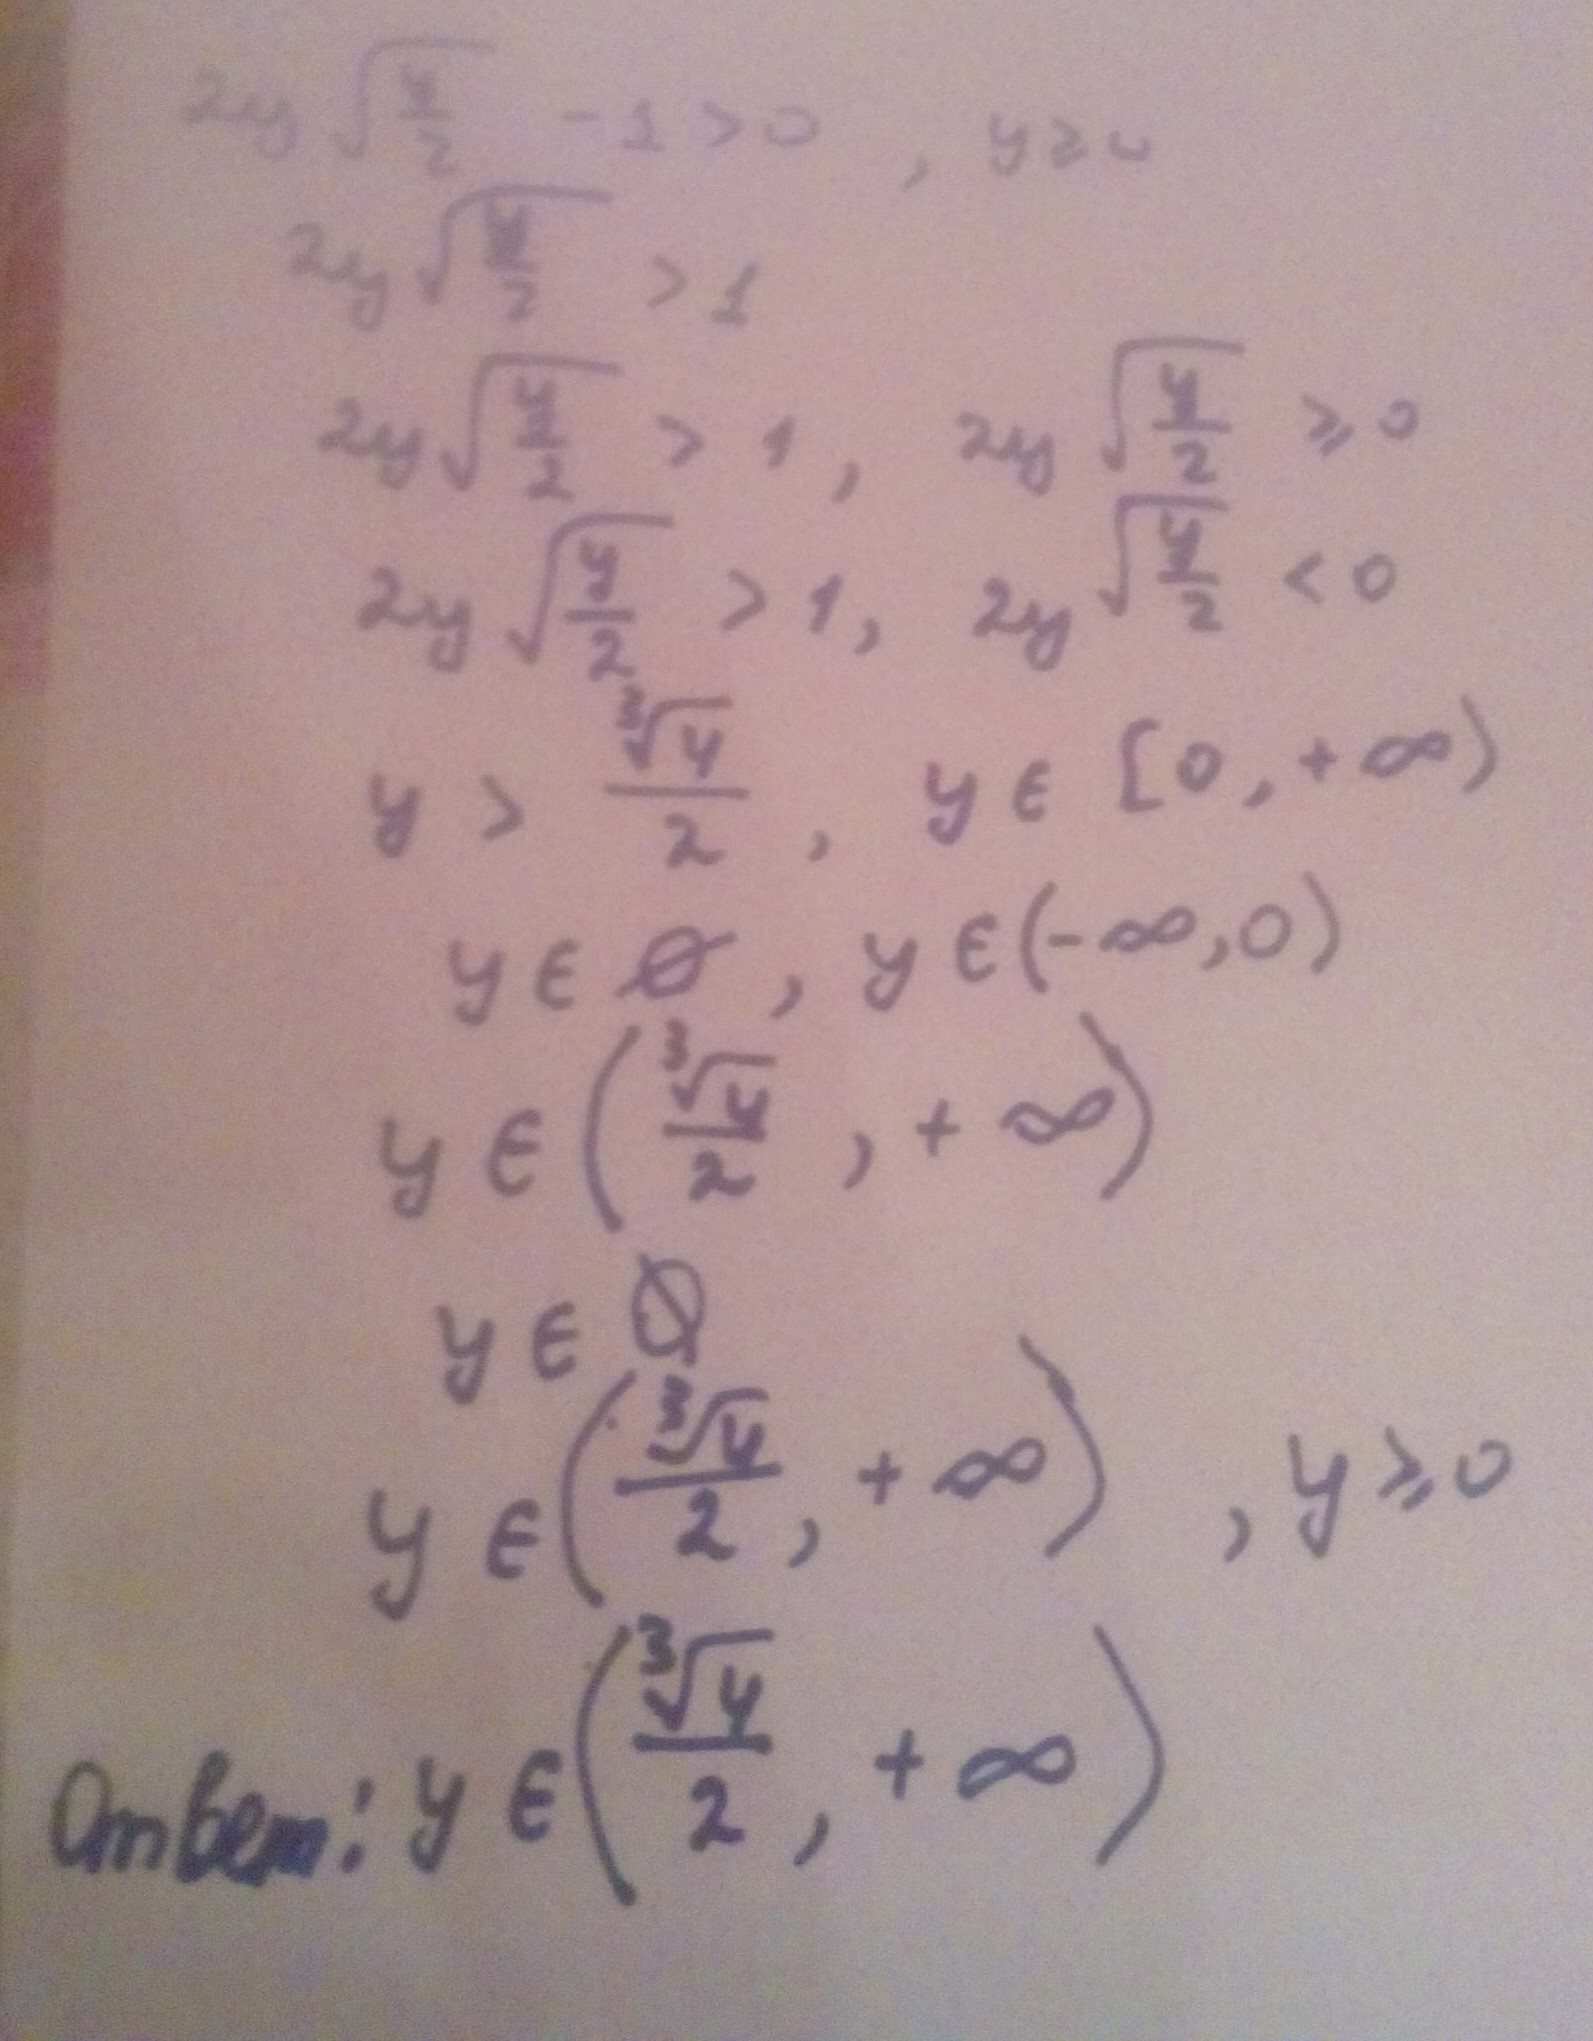 2y√(y/2) - 1 > 0 , y ≥ 0
2y√(y/2) > 1
2y√(y/2) > 1 , 2y√(y/2) ≥ 0
2y√(y/2) > 1 , 2y√(y/2) < 0
y > ∛4/2 , y ∈ [0, +∞)
y ∈ ∅ , y ∈ (-∞, 0)
y ∈ (∛4/2 , +∞)
y ∈ ∅
y ∈ (∛4/2 , +∞) , y ≥ 0
Ответ: y ∈ (∛4/2 , +∞)